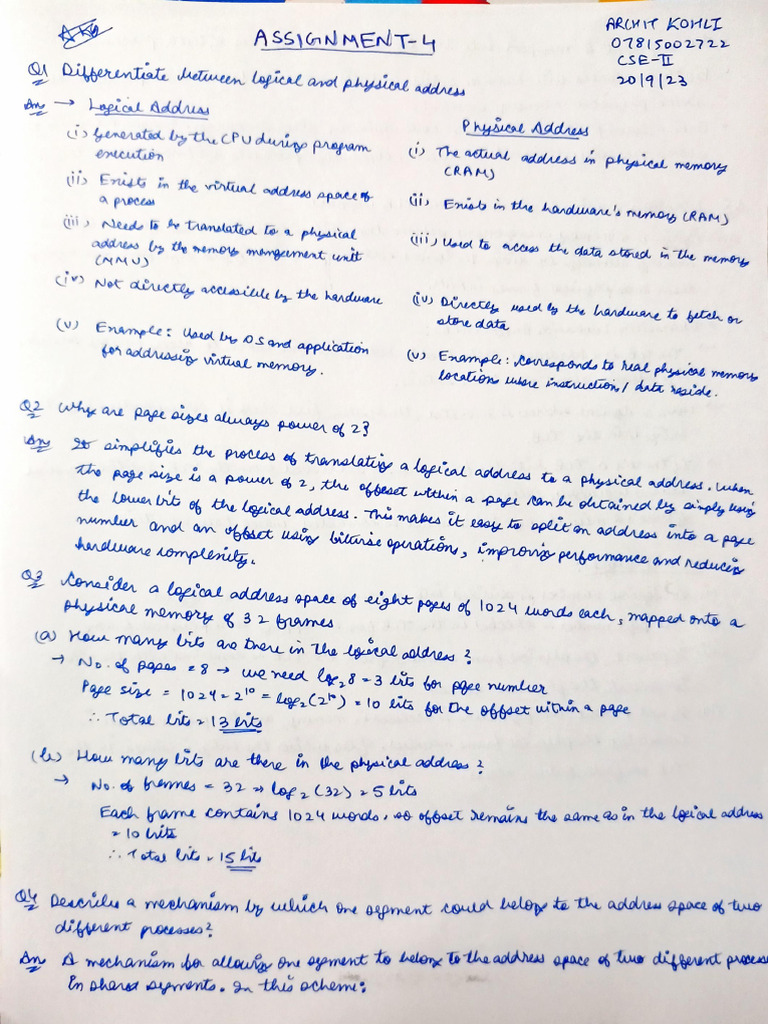 ASSIGNMENT-4
ARCHIT KOHLI
07815002722
CSE-II
20/9/23
Q1 Differentiate between logical and physical address
Ans → Logical Address
(i) Generated by the CPU during program
execution
(ii) Exists in the virtual address space of
a process
(iii) Needs to be translated to a physical
address by the memory management unit
(MMU)
(iv) Not directly accessible by the hardware
(v) Example: Used by OS and application
for addressing virtual memory.
Physical Address
(i) The actual address in physical memory
(RAM)
(ii) Exists in the hardware's memory (RAM)
(iii) Used to access the data stored in the memory
(iv) Directly used by the hardware to fetch or
store data
(v) Example: Corresponds to real physical memory
locations where instruction/data reside.
Q2 Why are page sizes always power of 2?
Ans It simplifies the process of translating a logical address to a physical address. When
the page size is a power of 2, the offset within a page can be obtained by simply using
the lower bits of the logical address. This makes it easy to split an address into a page
number and an offset using bitwise operations, improving performance and reducing
hardware complexity.
Q3 Consider a logical address space of eight pages of 1024 words each, mapped onto a
physical memory of 32 frames
(a) How many bits are there in the logical address?
→ No. of pages = 8 → we need log₂8 = 3 bits for page number
Page size = 1024 = 2¹⁰ = log₂(2¹⁰) = 10 bits for the offset within a page
∴ Total bits = 13 bits
(b) How many bits are there in the physical address?
→ No. of frames = 32 ⇒ log₂(32) = 5 bits
Each frame contains 1024 words, so offset remains the same as in the logical address
= 10 bits
∴ Total bits = 15 bits
Q4 Describe a mechanism by which one segment could belong to the address space of two
different processes?
Ans A mechanism for allowing one segment to belong to the address space of two different process
In shared segments. In this scheme: